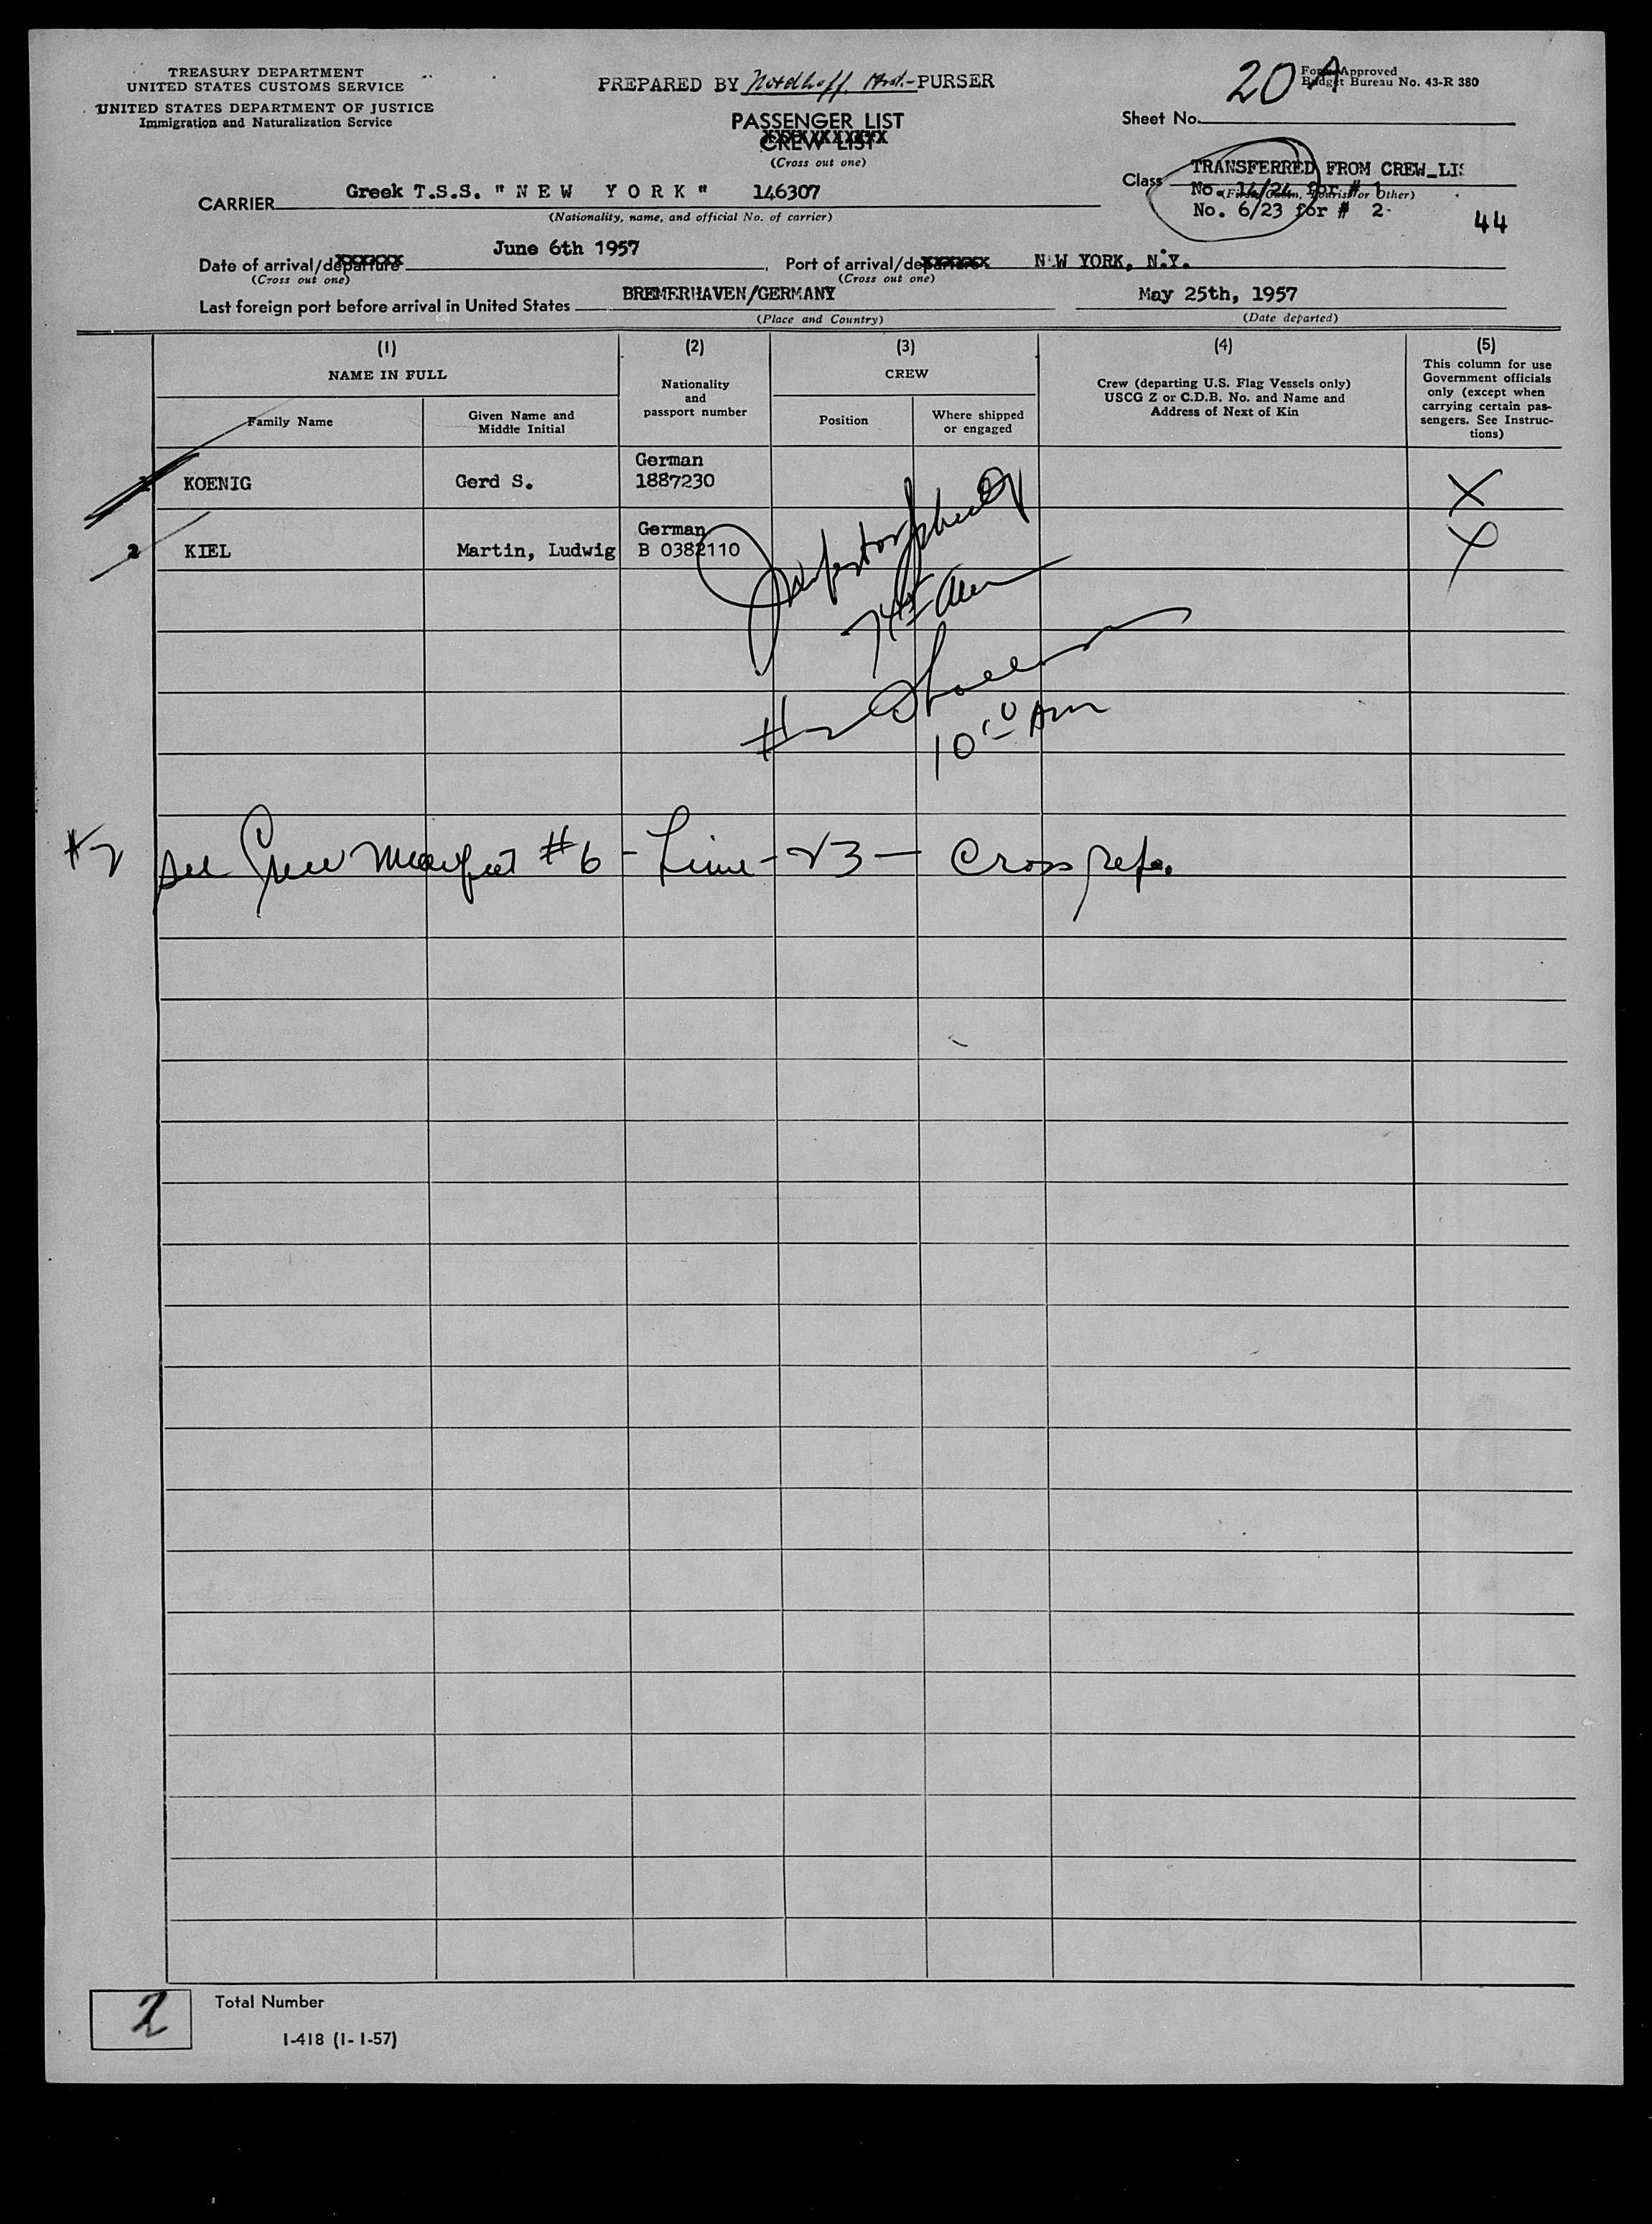 TREASURY DEPARTMENT
UNITED STATES CUSTOMS SERVICE
UNITED STATES DEPARTMENT OF JUSTICE
Immigration and Naturalization Service
PREPARED BY Nordhoff. PURSER
PASSENGER LIST
CREW LIST
(Cross out one)
20 A
Form Approved
Budget Bureau No. 43-R 380
Sheet No.
Class TRANSFERRED FROM CREW_LIS
No. 14/24 for # 1
(First, Cabin, Tourist or Other)
No. 6/23 for # 2
44
CARRIER Greek T.S.S. "NEW YORK" 146307
(Nationality, name, and official No. of carrier)
Date of arrival/departure June 6th 1957
(Cross out one)
Port of arrival/departure N W YORK, N.Y.
(Cross out one)
Last foreign port before arrival in United States BREMERHAVEN/GERMANY May 25th, 1957
(Place and Country) (Date departed)
(1) (2) (3) (4) (5)
NAME IN FULL
Family Name
Given Name and
Middle Initial
Nationality
and
passport number
CREW
Position
Where shipped
or engaged
Crew (departing U.S. Flag Vessels only)
USCG Z or C.D.B. No. and Name and
Address of Next of Kin
This column for use
Government officials
only (except when
carrying certain pas-
sengers. See Instruc-
tions)
1 KOENIG Gerd S. German 1887230 X
2 KIEL Martin, Ludwig German B 0382110 X
10 AM
#2 See Crew Manifest #6 - Line - 23 - Cross refs.
2
Total Number
I-418 (1-1-57)